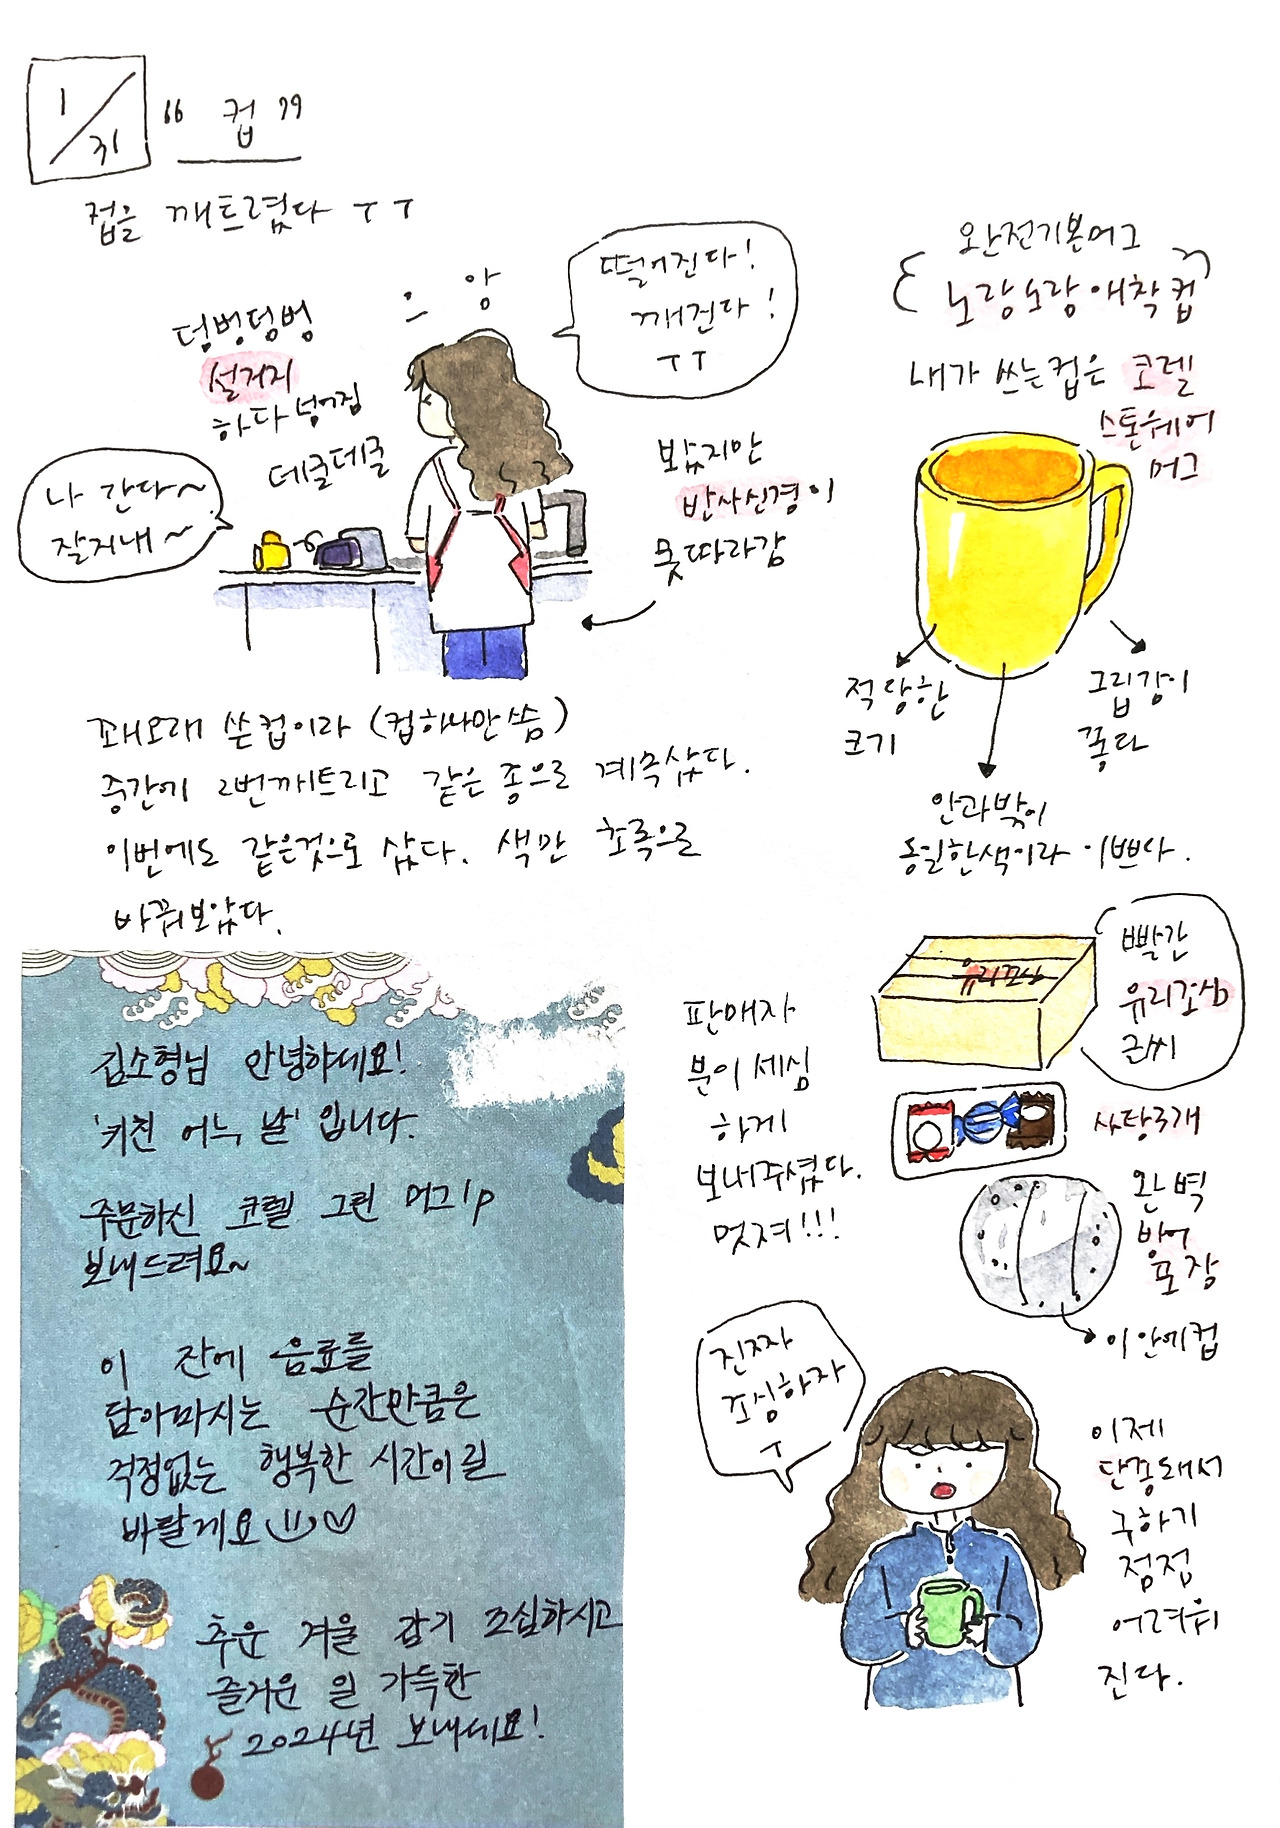 1/31
"컵"
컵을 깨트렸다 ㅜㅜ
으앙
떨어진다!
깨진다!
ㅜㅜ
덤벙덤벙
설거지
하다 넘어짐
데굴데굴
나 간다~
잘지내~
봤지만
반사신경이
못따라감
완전기본머그
노랑노랑애착컵
내가 쓰는컵은 코렐
스톤웨어
머그
적당한
크기
그립감이
좋다
안과밖이
동일한색이라 이쁘다.
꽤오래 쓴컵이라 (컵하나만씀)
중간에 2번깨트리고 같은 종으로 계속샀다.
이번에도 같은것으로 샀다. 색만 초록으로
바꿔보았다.
김소형님 안녕하세요!
'키친 어느 날' 입니다.
주문하신 코렐 그린 머그 1p
보내드려요~
이 잔에 음료를
담아마시는 순간만큼은
걱정없는 행복한 시간이길
바랄게요
추운 겨울 감기 조심하시고
즐거운 일 가득한
2024년 보내세요!
판매자
분이 세심
하게
보내주셨다.
멋져!!!
유리조심
빨간
유리조심
글씨
사탕3개
완벽
방어
포장
이안에컵
진짜
조심하자
ㅜ
이제
단종돼서
구하기
점점
어려워
진다.